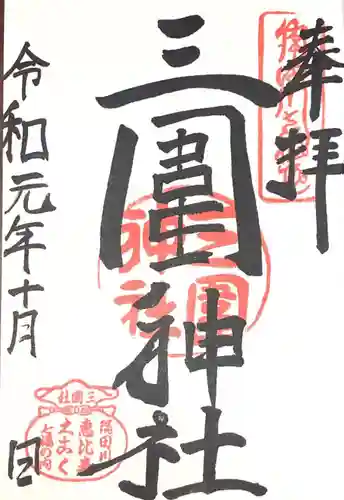 奉拝
三圍神社
令和元年十月 日
三囲神社
三囲社
隅田川
恵比寿
大こく
七福の内